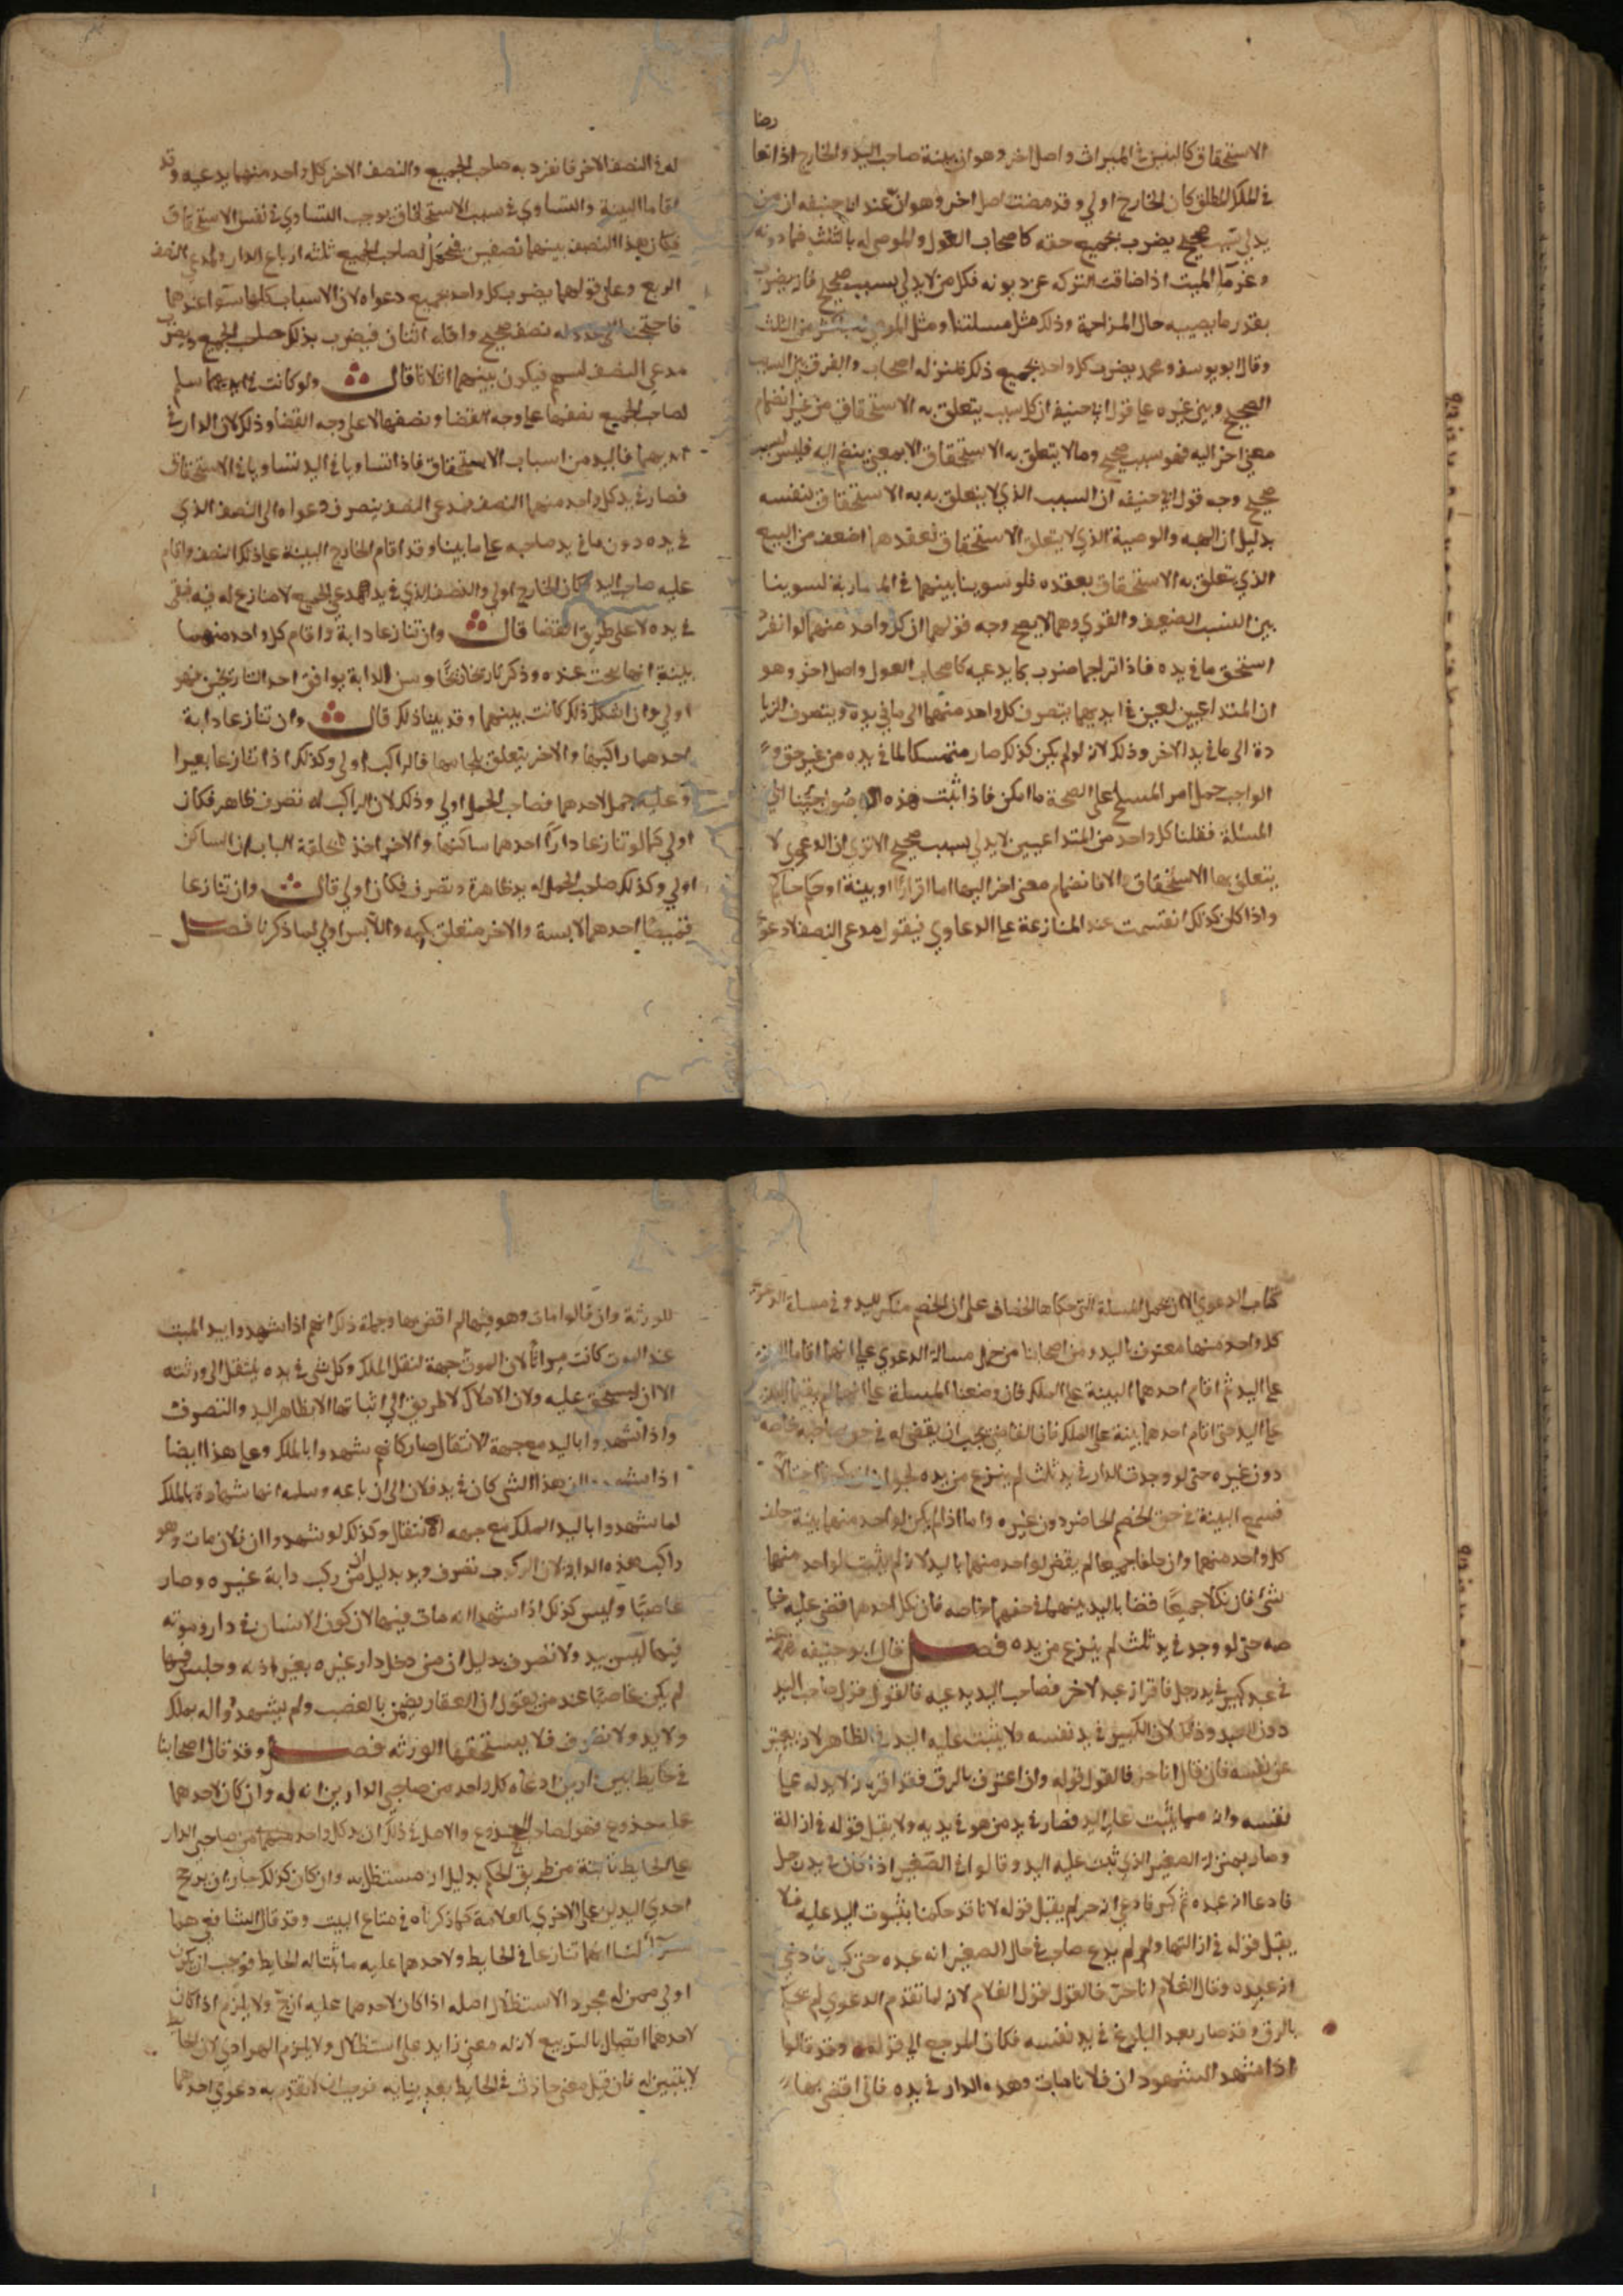 رضا
الاستحقاق كالبنين في الميراث واصل اخر وهو ان بينة صاحب اليد والخارج اذا
في الملك المطلق كان الخارج اولي وقد مضت اصل اخر وهو ان عند ابي حنيفه ان من
يدلي بسبب صحيح يضرب بجميع حقه كاصحاب العول والموصي له بالثلث فما دونه
وغرمآ الميت اذا ضاقت التركه عن ديونه فكل من لا يدلي بسبب صحيح فانه يضرب
بقدر ما يصيبه حال المزاحمة وذلك مثل مسلتنا ومثل الموصي له باكثر من الثلث
وقال ابو يوسف ومحمد يضرب كل واحد بجميع ذلك والفرق بين السبب
الصحيح وبين غيره علي قول ابي حنيفه ان كل سبب يتعلق به الاستحقاق من غير انضمام
معني اخر اليه فهو سبب صحيح وما لا يتعلق به الاستحقاق الا بمعني ينضم اليه فليس بسبب
صحيح وجه قول ابي حنيفه ان السبب الذي لا يتعلق به الاستحقاق بنفسه
بدليل ان الهبه والوصية الذي لا يتعلق الاستحقاق بعقدهما اضعف من البيع
الذي يتعلق به الاستحقاق بعقده فلو سوينا بينهما في المضاربة لسوينا
بين السبب الضعيف والقوي وهما لا يصح وجه قولهما ان كل واحد منهما لو انفرد
استحق ما في يده فاذا تزاحما ضرب بما يدعيه كاصحاب العول واصل اخر وهو
ان المتداعيين لعين في ايديهما يتصرف كل واحد منهما الي ما في يده ويتصرف الزيا
دة الي ما في يد الاخر وذلك لانه لو لم يكن كذلك صار متمسكا لما في يده من غير حق و
الواجب حمل امر المسلم علي الصحة ما امكن فاذا ثبت هذه الاصول جينا الي
المسئلة فقلنا كل واحد من المتداعيين لا يدلي بسبب صحيح الا تري ان الدعوي لا
يتعلق بها الاستحقاق الا بانضمام معني اخر اليها اما اقرارا او بينة او حكم حاكم
واذا كان كذلك انقسمت عند المنازعة علي الدعاوي فيقول مدعي النصف لا دعوي
له في النصف الاخر فانفرد به صاحب الجميع والنصف الاخر كل واحد منهما يدعيه وقد
اقاما البينة والتساوي في سبب الاستحقاق يوجب التساوي في نفس الاستحقاق
فيكان هذا النصف بينهما نصفين فحصل لصاحب الجميع ثلثه ارباع الدار ولمدعي النصف
الربع وعلي قولهما يضرب كل واحد بجميع دعواه لان الاسباب كلها سوآ عندهما
فاحتجنا الي عدد له نصف صحيح واقله اثنان فيضرب بذلك صاحب الجميع ويضرب
مدعي النصف بسهم فيكون بينهما اثلاثا قال ولو كانت في ايديهما سلم
لصاحب الجميع نصفها علي وجه القضا ونصفها لا علي وجه القضا وذلك لان الدار في
ايديهما فاليد من اسباب الاستحقاق فاذا تساويا في اليد تساويا في الاستحقاق
فصار في يد كل واحد منهما النصف فمدعي النصف ينصرف دعواه الي النصف الذي
في يده دون ما في يد صاحبه علي ما بينا وقد اقام الخارج البينة علي ذلك النصف واقام
عليه صاحب اليد فكان الخارج اولي والنصف الذي في يد مدعي الجميع لا منازع له فيه فبقي
في يده لا علي طريق القضا قال وان تنازعا دابة واقام كل واحد منهما
بينة انها نتجت عنده وذكرتاريخا وسن الدابة يوافق احد التاريخين فهو
اولي وان اشكل ذلك كانت بينهما وقد بينا ذلك قال وان تنازعا دابة
احدهما راكبها والاخر يتعلق بلجامها فالراكب اولي وكذلك اذا تنازعا بعيرا
وعليه حمل لاحدهما فصاحب الحمل اولي وذلك لان الراكب له تصرف ظاهر فكان
اولي كما لو تنازعا دارا احدهما ساكنها والاخر اخذ بحلقة الباب ان الساكن
اولي وكذلك صاحب الحمل له يد ظاهرة وتصرف فكان اولي قال وان تنازعا
قميصا احدهما لابسة والاخر متعلق بكمه واللابس اولي لما ذكرنا فصل
كتاب الدعوي الا ان يحمل المسئلة التي حكاها الخصاف علي ان الخصم منكر لليد وفي مسئلة الدعوي
كل واحد منهما معترف باليد ومن اصحابنا من حمل مسالة الدعوي علي انهما اقاما البينة
علي اليد ثم اقام احدهما البينة علي الملك فان وضعنا المسئلة علي انهما لم يقيما البينة
علي اليد حتي اقام احدهما بينة علي الملك فان القاضي يجب ان يقضي له في حق صاحبه خاصه
دون غيره حتي لو وجدت الدار في يد ثلث لم ينزع من يده لجواز ان
فسمع البينة في حق الخصم الحاضر دون غيره واما اذا لم يكن لواحد منهما بينة حلف
كل واحد منهما وان حلفا جميعا لم يقض لواحد منهما باليد لانه لم يثبت لواحد منهما
شي فان نكلا جميعا قضا باليد بينهما في حقهما خاصه فان نكل احدهما قضي عليه خا
صه حتي لو وجد في يد ثلث لم ينزع من يده فصل قال ابو حنيفه
في عبد كبير في يد رجل فاقر انه عبد لاخر فصاحب اليد يدعيه فالقول قول صاحب اليد
دون العبد وذلك لان الكبير في يد نفسه ولا يثبت عليه اليد في الظاهر لانه يعبر
عن نفسه فان قال انا حر فالقول قوله وان اعترف بالرق فقد اقر بانه لا يد له علي
نفسه وانه مما يثبت عليه اليد فصار في يد من هو في يديه ولا يقبل قوله في ازالة
وصار بمنزلة الصغير الذي ثبت عليه اليد وقالوا في الصغير اذا كان في يد رجل
فادعا انه عبده ثم كبر فادعي انه حر لم يقبل قوله لانا قد حكمنا بثبوت اليد عليه فلا
يقبل قوله في ازالتها ولو لم يدع صاحبه في حال الصغير انه عبده حتي كبر فادعي
انه عبده وقال الغلام انا حر فالقول قول الغلام لانه لما تقدم الدعوي لم يحكم
بالرق وقد صار بعد البلوغ في يد نفسه فكان المرجع الي قوله وقد قالوا
اذا شهد الشهود ان فلانا مات وهذه الدار في يده فاني اقضي بها
للورثة وان قالوا مات وهو فيها لم اقض بها وجملة ذلك انهم اذا شهدوا بيد الميت
عند الموت كانت ميراثا لان الموت جهة لنقل الملك وكل شي في يده ينتقل الي ورثته
الا ان يستحق عليه ولان الاملاك لا طريق الي اثباتها الا بظاهر اليد والتصرف
واذا شهدوا باليد مع جهة الانتقال صار كانهم شهدوا بالملك وعلي هذا ايضا
اذا شهدوا ان هذا الشي كان في يد فلان الي ان باعه وسلمه انها شهادة بالملك
لما شهدوا باليد الملك مع جهه الانتقال وكذلك لو شهدوا ان فلان مات وهو
راكب هذه الدابة لان الركوب تصرف ويد بدليل ان من ركب دابة غيره وصار
غاصبا وليس كذلك اذا شهدوا انه مات فيها لان كون الانسان في دار وموته
فيها ليس بيد ولا تصرف بدليل ان من دخل دار غيره بغير اذنه وجلس فيها
لم يكن غاصبا عند من يقول ان العقار يضمن بالغصب ولم يشهدوا له بملك
ولا يد ولا تصرف فلا يستحقها الورثه فصل وقد قال اصحابنا
في حايط بين دارين ادعاه كل واحد من صاحبي الدارين انه له وان كان لاحدهما
عليه جذوع فهو لصاحب الجذوع والاصل في ذلك ان يد كل واحد منهما من صاحبي الدار
علي الحايط ثابتة من طريق الحكم بدليل انه مستظل به وان كان كذلك جاز ان يرجح
احدي اليدين علي الاخري بالعلامة كما ذكرناه في متاع البيت وقد قال الشافعي هما
سوآ لنا انهما تنازعا في الحايط ولاحدهما عليه فوجب ان يكون
اولي ممن له مجرد الاستظلال اصله اذا كان لاحدهما عليه ازج ولا يلزم اذا كان
لاحدهما اتصال بالتربيع لانه معني زايد علي استظلال ولا يلزم الهرادي لان الحايط
لا يبني له فان قيل معني حادث في الحايط بعد بنايه فوجب ان لا تقدم به دعوي احدهما